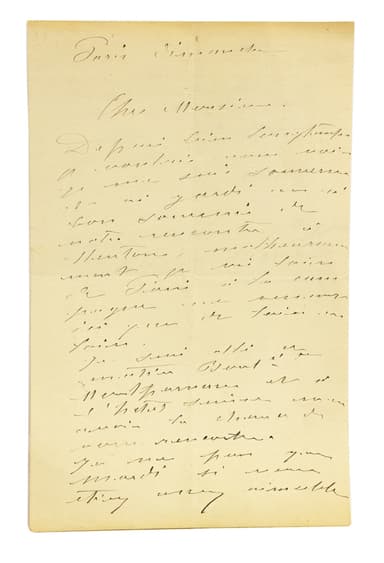 Paris Dimanche
Cher Monsieur.
Depuis bien longtemps
je voudrais vous voir
je me suis souvenu
et ai gardé un si
bon souvenir de
notre rencontre à
Menton, malheureuse
ment je vis loin
de Paris à la cam
pagne
ici que de loin en
loin.
Je suis allé
Montparnasse et à
l'hôtel Suisse sans
avoir la chance de
vous rencontrer.
Je ne puis que
mardi si vous
étiez assez aimable